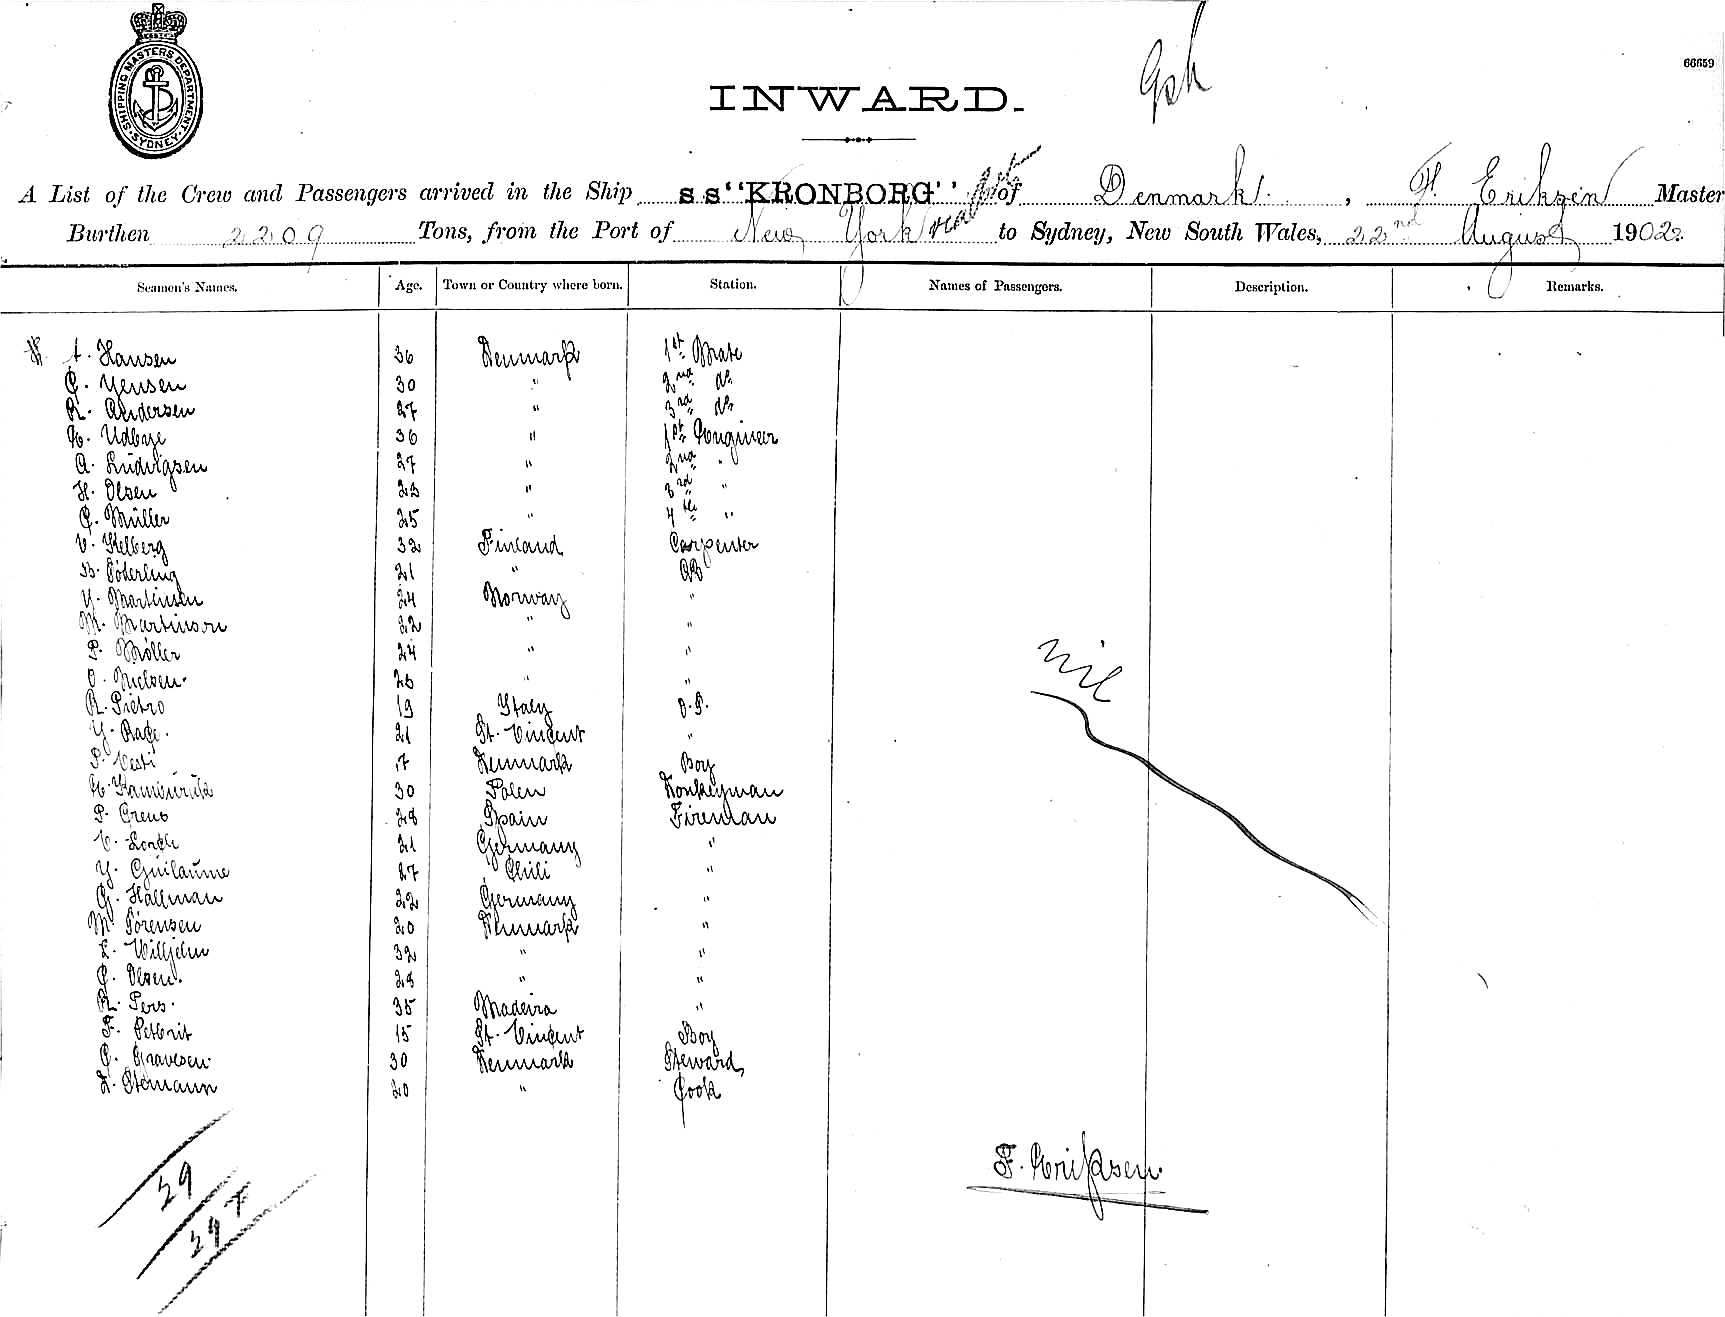 SHIPPING MASTERS DEPARTMENT
SYDNEY
66659
INWARD.
A List of the Crew and Passengers arrived in the Ship s s "KRONBORG" of Denmark, F. Eriksen Master
Burthen 2209 Tons, from the Port of New York via to Sydney, New South Wales, 22nd August 1902
Seamen's Names. Age. Town or Country where born. Station. Names of Passengers. Description. Remarks.
A. Hansen 36 Denmark 1st Mate
C. Yensen 30 " 2nd do
R. Andersen 27 " 3rd do
E. Udbye 36 " 1st Engineer
A. Ludvigsen 27 " 2nd "
H. Olsen 23 " 3rd "
C. Müller 25 " 4th "
V. Stelberg 32 Finland Carpenter
B. Söderling 21 " AB
Y. Martinsen 24 Norway "
M. Martinson 22 " "
P. Möller 24 " "
O. Nielsen. 26 " "
R. Pietro 19 Italy O.S.
Y. 21 St. Vincent "
P. Vesti 17 Denmark Boy
30 Polen Donkeyman
P. 28 Spain Fireman
21 Germany "
Y. Guilaume 27 Chili "
G. Hallman 22 Germany "
M. Sörensen 20 Denmark "
L. Willjelm 32 " "
C. Olsen. 28 " "
R. Pers. 35 Madeira "
F. 15 St. Vincent Boy
C. Gravesen 30 Denmark Steward
L. Stemann 20 " Cook
nil
F. Eriksen
29
29